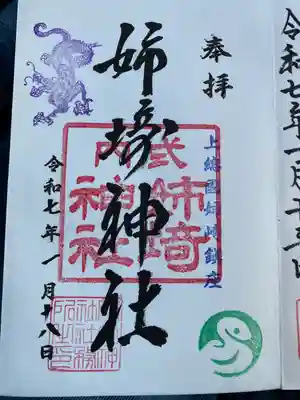 奉拝
上総国姉崎鎮座
姉埼神社
式内
姉埼
神社
令和七年一月十八日
令和七年一月十三日